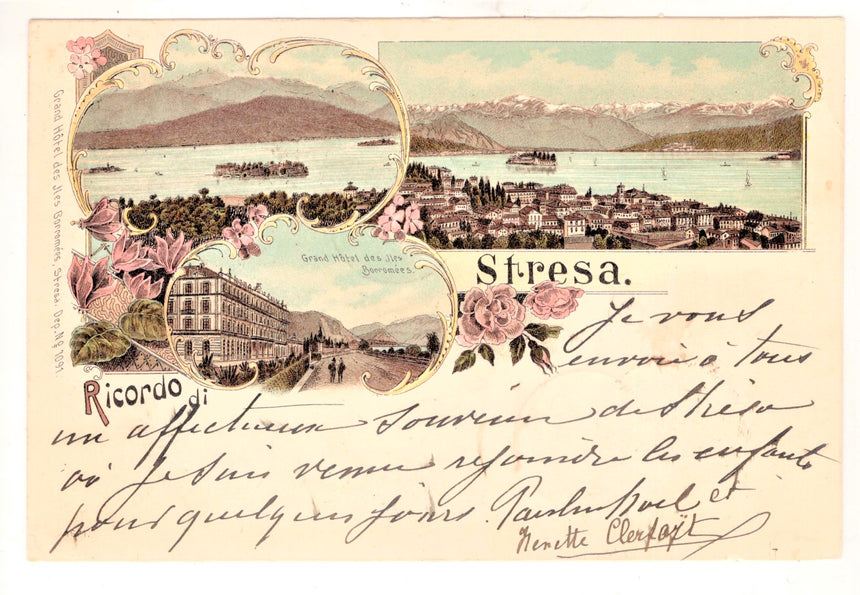 Grand Hôtel des Jles Borromées, Stresa. Dep. Nº 1091.
Grand Hôtel des Jles
Borromées.
Stresa.
Ricordo di
Je vous
envoie à tous
un affectueux souvenir de Strésa
où je suis venue rejoindre les enfants
pour quelques jours. et
Clerfaÿt